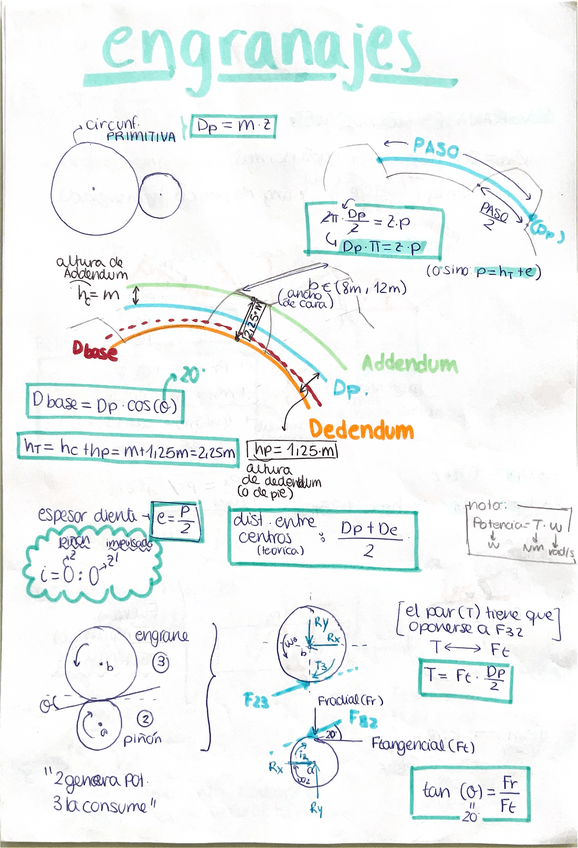 engranajes
circunf.
PRIMITIVA
Dp = m · z
PASO
PASO
2
(Dp)
2π · Dp/2 = z · p
↳ Dp · π = z · p
(o sino p = hT + e)
altura de
Addendum
hc = m
b ∈ (8m, 12m)
(ancho
de cara)
2,25·m
Dbase
Addendum
Dp.
Dedendum
20°
Dbase = Dp · cos(θ)
hT = hc + hp = m + 1,25m = 2,25m
hp = 1,25·m
altura
de dedendum
(o de pie)
espesor diente → e = P/2
dist. entre
centros : Dp + De / 2
(teorica)
nota:
Potencia = T · ω
W Nm rad/s
i = O : O
z2 z1
engrane
b
③
a
②
piñón
"2 genera pot.
3 la consume"
Ry
Rx
ω3
b
T3
F23
Fradial (Fr)
F32
20°
Ftangencial (Ft)
T2
a
Rx
ω2
Ry
[el par (T) tiene que]
oponerse a F32
T ⟷ Ft
T = Ft · Dp/2
tan (θ) = Fr/Ft
20°